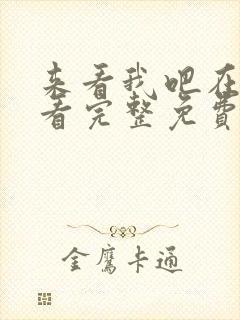 来看我吧在
看完整免费
金鹰卡通